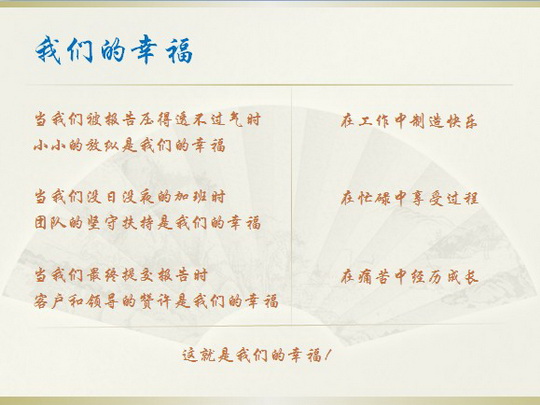 我们的幸福
当我们被报告压得透不过气时
小小的放纵是我们的幸福
在工作中制造快乐
当我们没日没夜的加班时
团队的坚守扶持是我们的幸福
在忙碌中享受过程
当我们最终提交报告时
客户和领导的赞许是我们的幸福
在痛苦中经历成长
这就是我们的幸福！